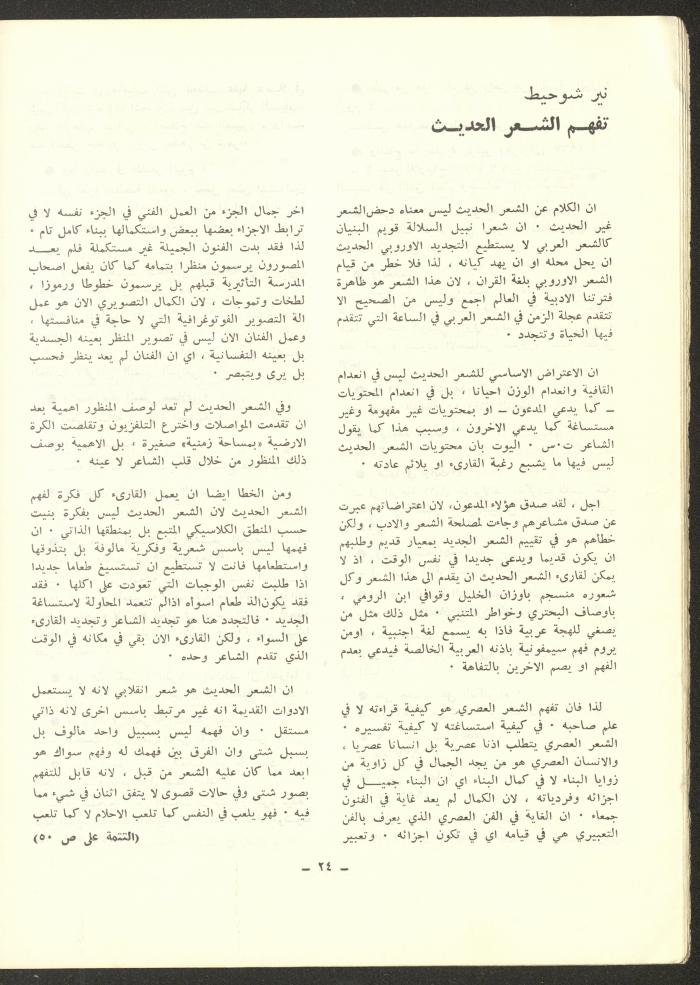 نير شوحيط
تفهم الشعر الحديث
ان الكلام عن الشعر الحديث ليس معناه دحض الشعر
غير الحديث ٠ ان شعرا نبيل السلالة قويم البنيان
كالشعر العربي لا يستطيع التجديد الاوروبي الحديث
ان يحل محله او ان يهد كيانه ، لذا فلا خطر من قيام
الشعر الاوروبي بلغة القران ، لان هذا الشعر هو ظاهرة
فترتنا الادبية في العالم اجمع وليس من الصحيح الا
تتقدم عجلة الزمن في الشعر العربي في الساعة التي تتقدم
فيها الحياة وتتجدد ٠
ان الاعتراض الاساسي للشعر الحديث ليس في انعدام
القافية وانعدام الوزن احيانا ، بل في انعدام المحتويات
ـ كما يدعي المدعون ـ او بمحتويات غير مفهومة وغير
مستساغة كما يدعي الاخرون ، وسبب هذا كما يقول
الشاعر ت٠س ٠ اليوت بان محتويات الشعر الحديث
ليس فيها ما يشبع رغبة القارىء او يلائم عادته ٠
اجل ، لقد صدق هؤلاء المدعون، لان اعتراضاتهم عبرت
عن صدق مشاعرهم وجاءت لمصلحة الشعر والادب ، ولكن
خطأهم هو في تقييم الشعر الجديد بمعيار قديم وطلبهم
ان يكون قديما ويدعى جديدا في نفس الوقت ، اذ لا
يمكن لقارىء الشعر الحديث ان يقدم الى هذا الشعر وكل
شعوره منسجم باوزان الخليل وقوافي ابن الرومي ،
باوصاف البحتري وخواطر المتنبي ٠ مثل ذلك مثل من
يصغي للهجة عربية فاذا به يسمع لغة اجنبية ، اومن
يروم فهم سيمفونية باذنه العربية الخالصة فيدعي بعدم
الفهم او يصم الاخرين بالتفاهة ٠
لذا فان تفهم الشعر العصري هو كيفية قراءته لا في
علم صاحبه ٠ في كيفية استساغته لا كيفية تفسيره ٠
الشعر العصري يتطلب اذنا عصرية بل انسانا عصريا ،
والانسان العصري هو من يجد الجمال في كل زاوية من
زوايا البناء لا في كمال البناء اي ان البناء جميل في
اجزائه وفردياته ، لان الكمال لم يعد غاية في الفنون
جمعاء ٠ ان الغاية في الفن العصري الذي يعرف بالفن
التعبيري هي في قيامه اي في تكون اجزائه ٠ وتعبير
اخر جمال الجزء من العمل الفني في الجزء نفسه لا في
ترابط الاجزاء بعضها ببعض واستكمالها ببناء كامل تام ٠
لذا فقد بدت الفنون الجميلة غير مستكملة فلم يعد
المصورون يرسمون منظرا بتمامه كما كان يفعل اصحاب
المدرسة التأثيرية قبلهم بل يرسمون خطوطا ورموزا ،
لطخات وتموجات ، لان الكمال التصويري الان هو عمل
الة التصوير الفوتوغرافية التي لا حاجة في منافستها ،
وعمل الفنان الان ليس في تصوير المنظر بعينه الجسدية
بل بعينه النفسانية ، اي ان الفنان لم يعد ينظر فحسب
بل يرى ويتبصر ٠
وفي الشعر الحديث لم تعد لوصف المنظور اهمية بعد
ان تقدمت المواصلات واخترع التلفزيون وتقلصت الكرة
الارضية «بمساحة زمنية» صغيرة ، بل الاهمية بوصف
ذلك المنظور من خلال قلب الشاعر لا عينه ٠
ومن الخطا ايضا ان يعمل القارىء كل فكرة لفهم
الشعر الحديث لان الشعر الحديث ليس بفكرة بنيت
حسب المنطق الكلاسيكي المتبع بل بمنطقها الذاتي ٠ ان
فهمها ليس باسس شعرية وفكرية مالوفة بل بتذوقها
واستطعامها فانت لا تستطيع ان تستسيغ طعاما جديدا
اذا طلبت نفس الوجبات التي تعودت على اكلها ٠ فقد
فقد يكون الذ طعام اسوأه اذا لم تتعمد المحاولة لاستساغة
الجديد ٠ فالتجدد هنا هو تجديد الشاعر وتجديد القارىء
على السواء ، ولكن القارىء الان بقي في مكانه في الوقت
الذي تقدم الشاعر وحده ٠
ان الشعر الحديث هو شعر انقلابي لانه لا يستعمل
الادوات القديمة انه غير مرتبط باسس اخرى لانه ذاتي
مستقل ٠ وان فهمه ليس بسبيل واحد مألوف بل
بسبل شتى وان الفرق بين فهمك له وفهم سواك هو
ابعد مما كان عليه الشعر من قبل ، لانه قابل للتفهم
بصور شتى وفي حالات قصوى لا يتفق اثنان في شيء مما
فيه ٠ فهو يلعب في النفس كما تلعب الاحلام لا كما تلعب
(التتمة على ص ٥٠)
ـ ٢٤ ـ